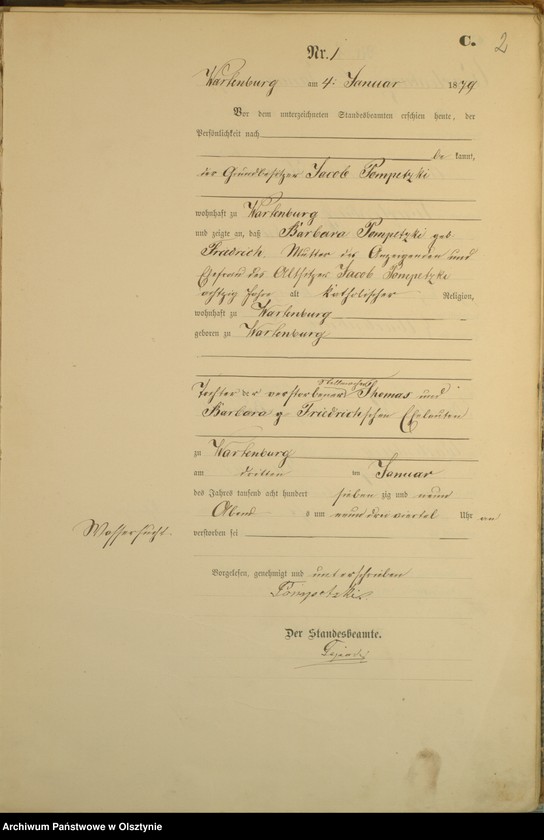 C.
2
Nr. 1
Wartenburg am 4. Januar 1879
Vor dem unterzeichneten Standesbeamten erschien heute, der
Persönlichkeit nach
be kannt,
der Grundbesitzer Jacob Pompetzki
wohnhaft zu Wartenburg
und zeigte an, daß Barbara Pompetzki geb.
Friedrich, Mutter des Anzeigenden und
Ehefrau des Altsitzer Jacob Pompetzki
achtzig Jahre alt katholischer Religion,
wohnhaft zu Wartenburg
geboren zu Wartenburg
Stellmacher
Tochter der verstorbenen Thomas und
Barbara Friedrichschen Eheleuten
zu Wartenburg
am dritten Januar
des Jahres tausend acht hundert sieben zig und neun
Abend s um neun drei viertel Uhr an
Wassersucht
verstorben sei
Vorgelesen, genehmigt und unterschrieben
Pompetzki
Der Standesbeamte.
Archiwum Państwowe w Olsztynie